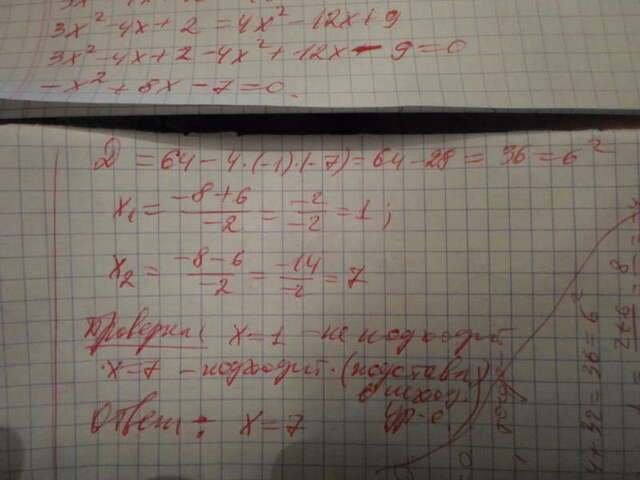 3x² - 4x + 2 = 4x² - 12x + 9
3x² - 4x + 2 - 4x² + 12x - 9 = 0
-x² + 8x - 7 = 0.
D = 64 - 4·(-1)·(-7) = 64 - 28 = 36 = 6²
x₁ = (-8+6)/(-2) = (-2)/(-2) = 1;
x₂ = (-8-6)/(-2) = (-14)/(-2) = 7
x=1 - не подходит
x=7 - подходит. (подставл)
в исход.
ур-е.
Ответ: x=7
4+32=36=6²